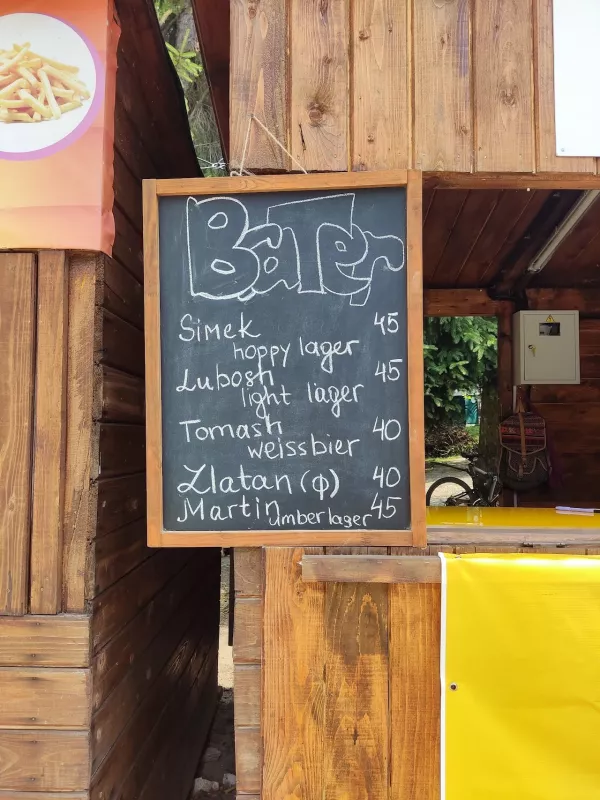 BaTer
Simek 45
hoppy lager
Lubosh 45
light lager
Tomash 40
weissbier
Zlatan (ф) 40
Martin umber lager 45